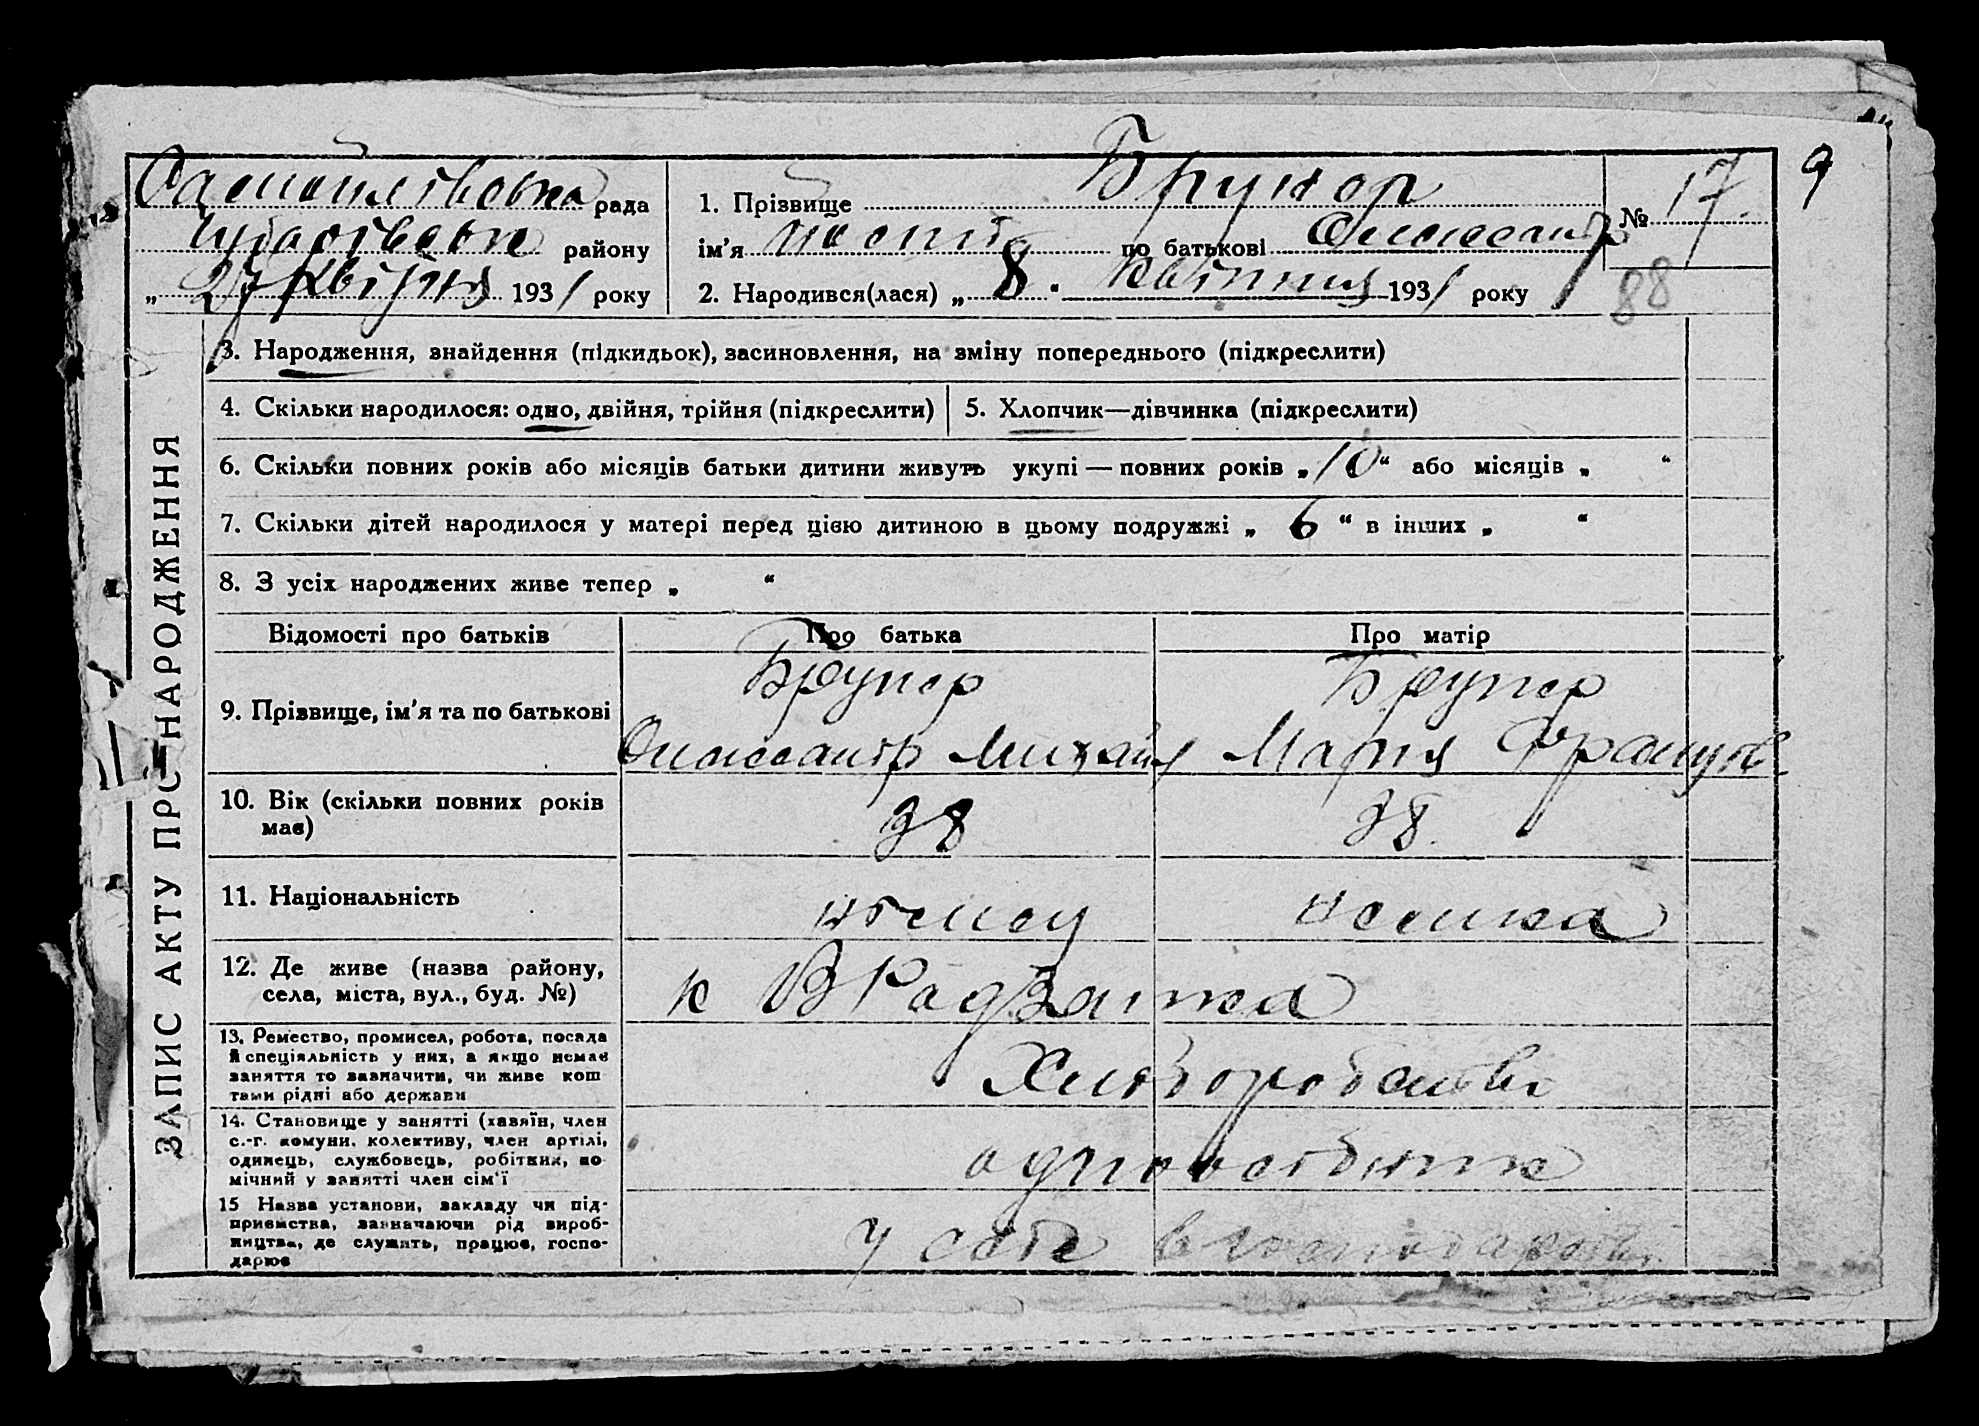 9
рада
1. Прізвище Брунер
№ 17.
району
ім'я по батькові Олександр
„ 27 Квітня 1931 року
2. Народився(лася) „ 8. Квітня 1931 року
88
ЗАПИС АКТУ ПРО НАРОДЖЕННЯ
3. Народження, знайдення (підкидьок), засиновлення, на зміну попереднього (підкреслити)
4. Скільки народилося: одно, двійня, трійня (підкреслити)
5. Хлопчик—дівчинка (підкреслити)
6. Скільки повних років або місяців батьки дитини живуть укупі — повних років „ 10 “ або місяців „ “
7. Скільки дітей народилося у матері перед цією дитиною в цьому подружжі „ 6 “ в інших „ “
8. З усіх народжених живе тепер „ “
Відомості про батьків
Про батька
Про матір
9. Прізвище, ім'я та по батькові
Брунер
Олександр Михайл
Брунер
Марія
10. Вік (скільки повних років
має)
38
38.
11. Національність
німець
німка
12. Де живе (назва району,
села, міста, вул., буд. №)
к
13. Ремество, промисел, робота, посада
й спеціяльність у них, а якщо немає
заняття то зазначити, чи живе кош
тами рідні або держави
Хліборобство
14. Становище у занятті (хазяїн, член
с.-г. комуни, колективу, член артілі,
одинець, службовець, робітник, по
мічний у занятті член сім'ї
одноосібник
15 Назва установи, закладу чи під-
приємства, зазначаючи рід вироб-
ництва, де служить, працює, госпо-
дарює
у себе в господарстві